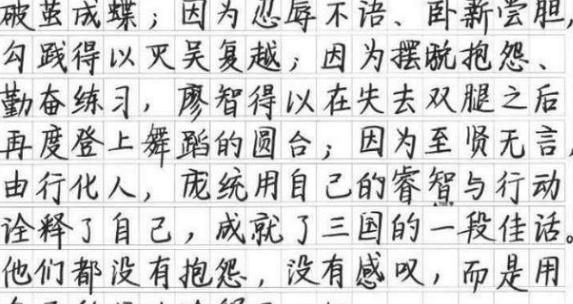 破茧成蝶；因为忍辱不语、卧薪尝胆，
勾践得以灭吴复越；因为摆脱抱怨、
勤奋练习，廖智得以在失去双腿之后
再度登上舞蹈的圆台；因为至贤无言，
由行化人，庞统用自己的睿智与行动
诠释了自己，成就了三国的一段佳话。
他们都没有抱怨，没有感叹，而是用